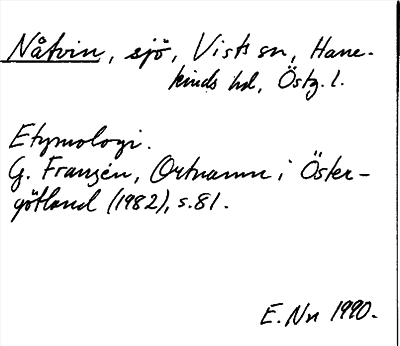 Nåtvin, sjö, Vists sn, Hane-
kinds hd, Östg. l.
Etymologi.
G. Franzén, Ortnamn i Öster-
götland (1982), s. 81.
E. Nn 1990.